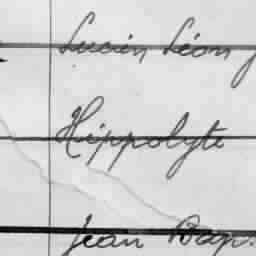 Lucien Léon J
Hippolyte
Jean Bap.